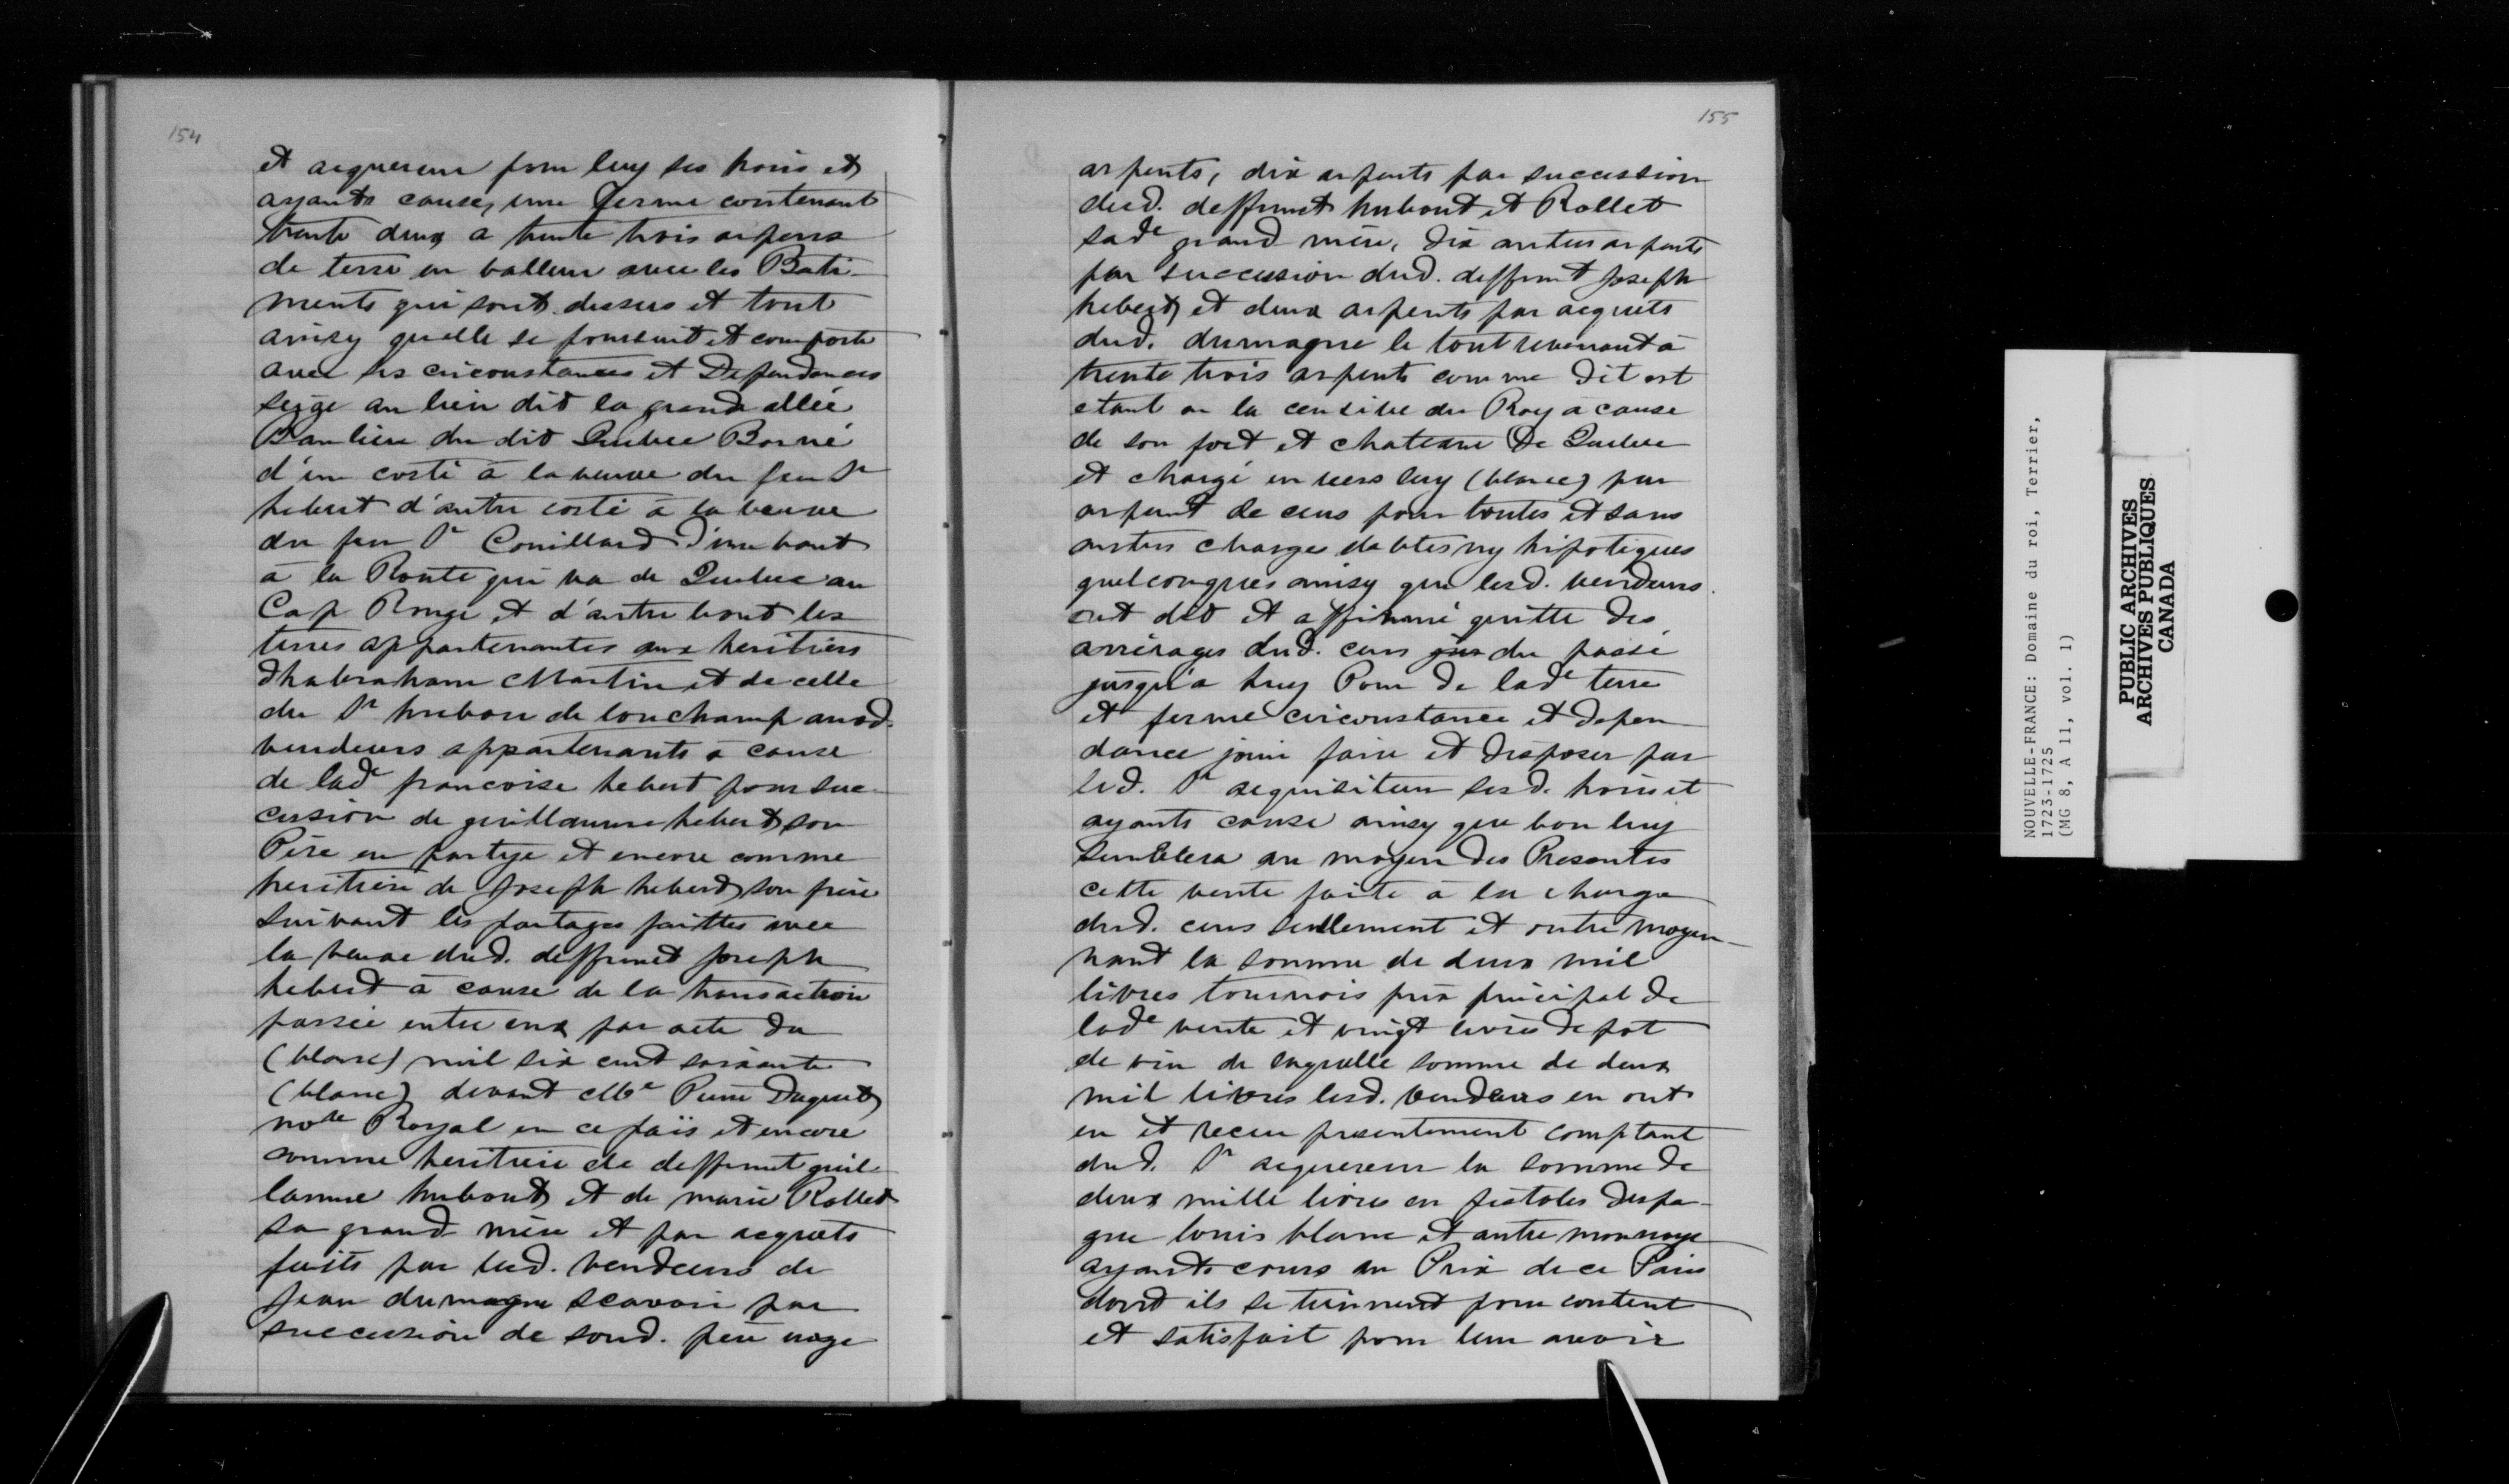 154
et acquereur pour luy ses hoirs et
ayants cause, une ferme contenant
trente deux a trente trois arpens
de terre en valleur avec les Bati-
ments qui sont dessus et tout
ainsy quelle se poursuit et comporte
avec ses circonstances et Dependances
seize au lieu dit la grande allée
Banlieu du dit Quebec Borné
d'un costé à la veuve du feu Sr
hebert d'autre costé à la veuve
du feu Sr Couillard d'un bout
à la Route qui va de Quebec au
Cap Rouge et d'autre bout les
terres appartenantes aux heritiers
dhabraham Martin et de celle
du Sr hubou de lonchamp auxd.
vendeurs appartenants à cause
de lade francoise hebert pour suc-
cession de guillaume hebert son
Père en partye et encore comme
heritiere de Joseph hebert son frere
suivant les partages faittes avec
la veuve dud. deffunct Joseph
hebert à cause de la transaction
passée entre eux par acte du
(blanc) mil six cent soixante
(blanc) devant Me Pierre Duquet
nore Royal en ce païs et encore
comme heritiere de deffunct guil-
laume hubout et de marie Rollet
sa grand mère et par acquets
faits par lesd. vendeurs de
Jean dumagne scavoir par
succession de sond. père
155
arpents, dix arpents par succession
dud. deffunct hubout et Rollet
sade grand mère, dix autres arpents
par succession dud. deffunt Joseph
hebert et deux arpents par acquets
dud. dumagne le tout revenant à
trente trois arpents comme dit est
etant en la censive du Roy a cause
de son fort et chateau De Quebec
et chargé envers luy (blanc) par
arpent de cens pour toutes et sans
autres charges debtes ny hipoteques
quelconques ainsy que lesd. vendeurs
ont dit et affirmé quitte des
arrérages dud. cens du passé
jusqu'a huy Pour De lade terre
et ferme circonstance et depen
dance jouir faire et disposer par
led. Sr acquisiteur sesd. hoirs et
ayants cause ainsy que bon luy
semblera au moyen des Presentes
cette vente faite à la charge
dud. cens seullement et outre moyen-
nant la somme de deux mil
livres tournois prix principal de
lade vente et vingt livres de pot
de vin de laquelle somme de deux
mil livres lesd. vendeurs en ont
eu et receu presentement comptant
dud. Sr acquereur la somme de
deux mille livres en pistoles despa-
gne louis blanc et autre monnaye
ayants cours au Prix de ce Pais
dont ils se tiennent pour content
et satisfait pour leur avoir
NOUVELLE-FRANCE: Domaine du roi, Terrier,
1723-1725
(MG 8, A 11, vol. 1)
PUBLIC ARCHIVES
ARCHIVES PUBLIQUES
CANADA